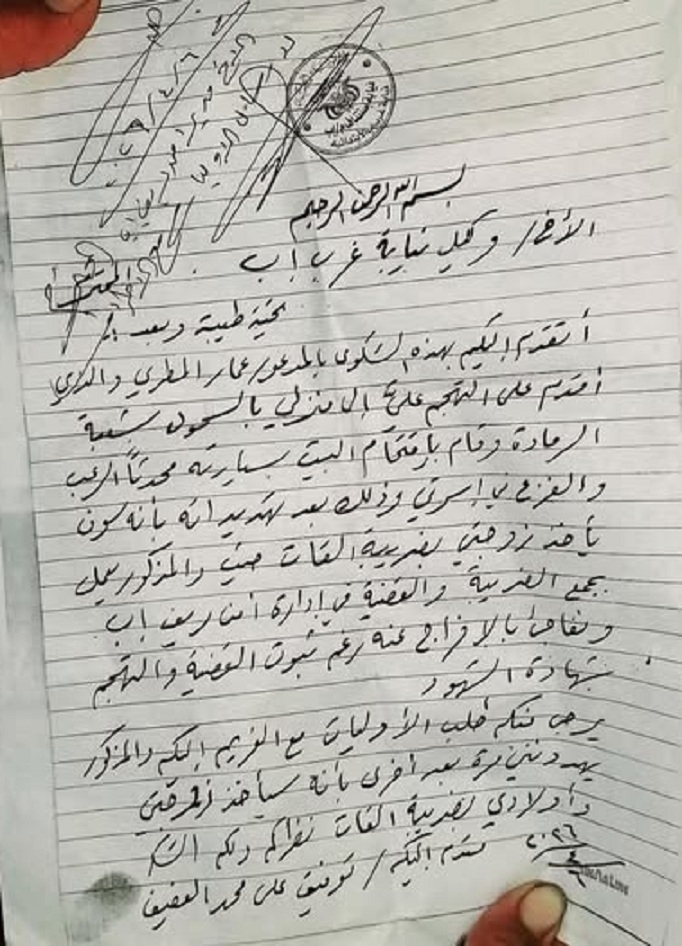 بسم الله الرحمن الرحيم
الأخ/ وكيل نيابة غرب إب
المحترم
تحية طيبة وبعد
أتقدم إليكم بهذه الشكوى بالمدعو/ عمار المطري والذي
أقدم على التهجم علي إلى منزلي بالسحول شعبة
الرمادة وقام بإقتحام البيت بسيارته محدثاً الرعب
والفزع في إسرتي وذلك بعد تهديداته بأنه سوف
يأخذ زوجتي بضريبة القات حيث والمذكور يعمل
بجمع الضريبة والقضية في إدارة أمن ريف إب
ونفاجئ بالإفراج عنه رغم ثبوت القضية والتهجم
بشهادة الشهود
يرجى منكم طلب الأوليات مع الغريم إليكم والمذكور
يهددني مرة بعد أخرى بأنه سيأخذ زوجتي
وأولادي بضريبة القات نظراكم ولكم الشكر
مقدم إليكم/ توفيق علي محمد العفيف
٢٠٢٦